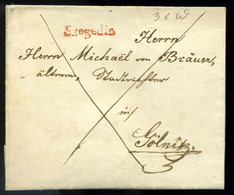 3 x W
Szegedin
Herrn
Herrn Michaël von Bräuer,
älteren Stadtrichter
in
Gölnitz